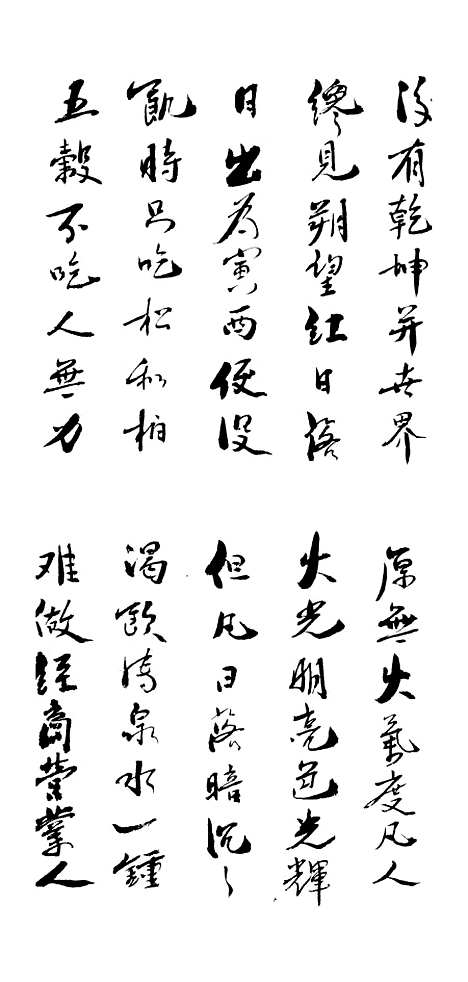 没有乾坤并世界
纔見朔望紅日落
日出為寅酉便没
飢時只吃松和柏
五穀不吃人無力
原無火氣度凡人
火光明亮包光輝
但凡日落暗沉〻
渴飲清泉水一鍾
难做經商營業人